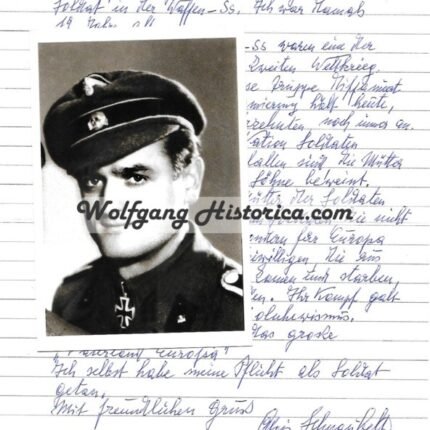 Soldat in der Waffen-SS. Ich war damals
19 Jahre alt
-SS waren eine der
Zweiten Weltkrieg.
se Truppe Diffamiert
mierung hält heute,
zehnten noch immer an.
ation Soldaten
fallen sind die Mütter
Söhne beweint.
Mütter der Soldaten
Wolfgang Historica.com
sie nicht
für Europa
eiwilligen die aus
kamen und starben
en. Ihr Kampf galt
olschewismus.
Das große
Europa"
Ich selbst habe meine Pflicht als Soldat
getan,
Mit freundlichen Gruß